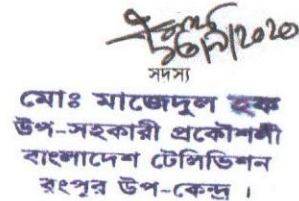 সদস্য
মোঃ মাজেদুল হক
উপ-সহকারী প্রকৌশলী
বাংলাদেশ টেলিভিশন
রংপুর উপ-কেন্দ্র ।